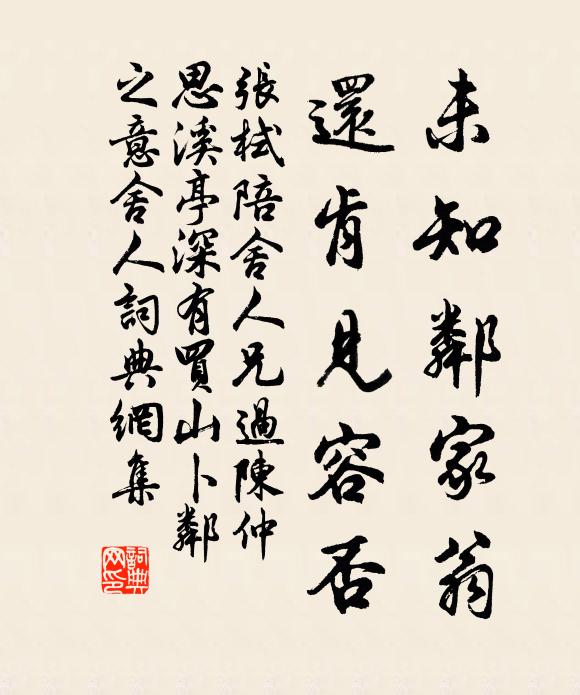 未知鄰家翁
還肯見容否
張栻陪舍人兄過陳仲
思溪亭深有買山卜鄰
之意舍人詞典網集
詞典网印